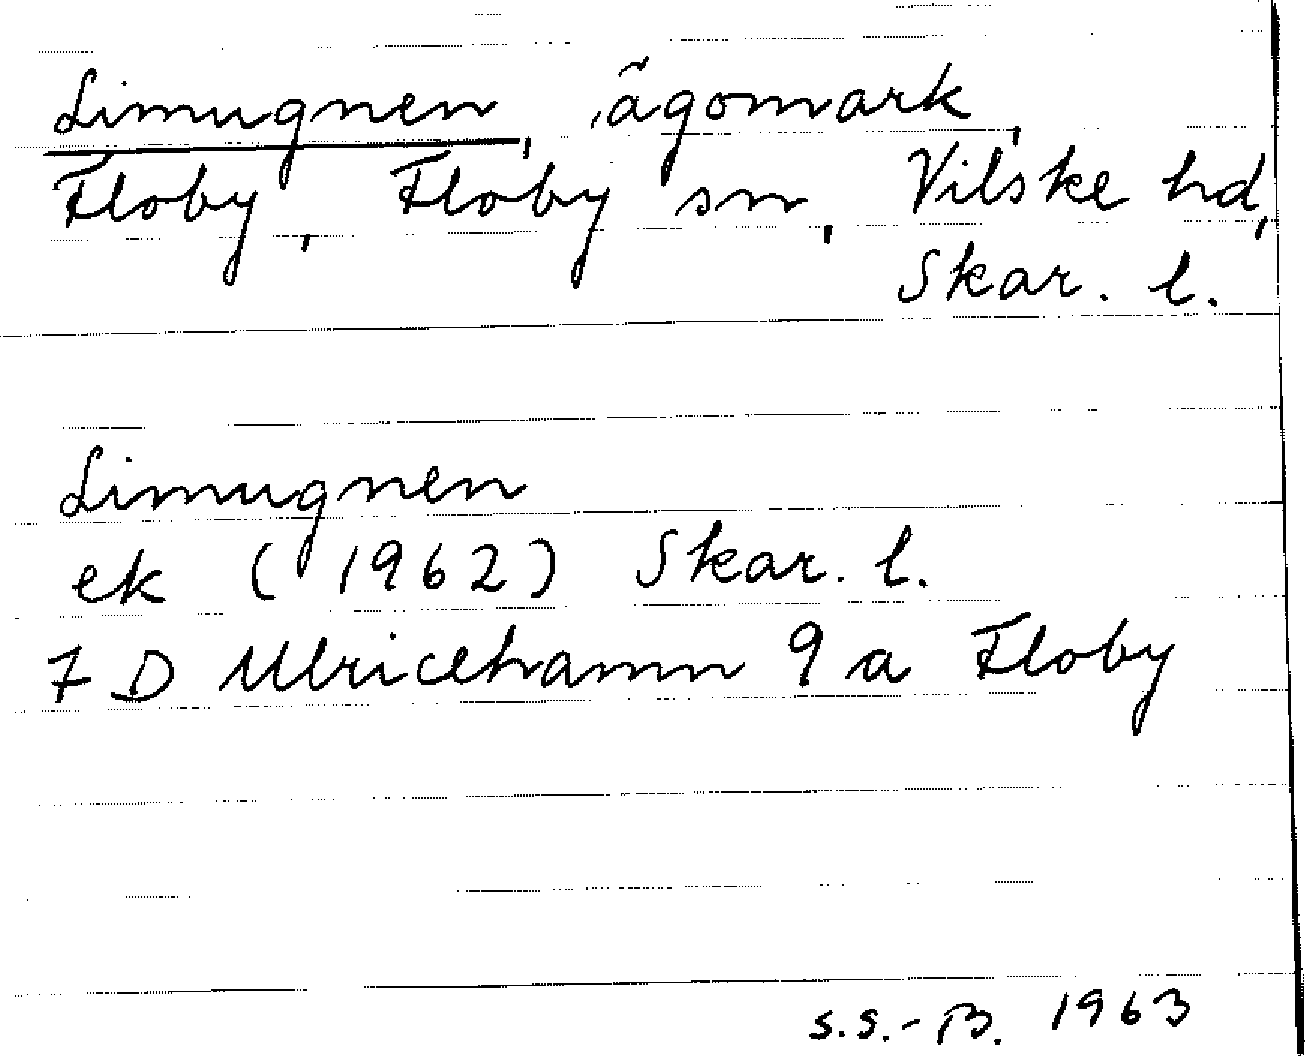 Limugnen, ägomark,
Floby, Floby sn, Vilske hd,
Skar. l.
Limugnen
ek (1962) Skar. l.
7 D Ulricehamn 9 a Floby
S.S.-B. 1963